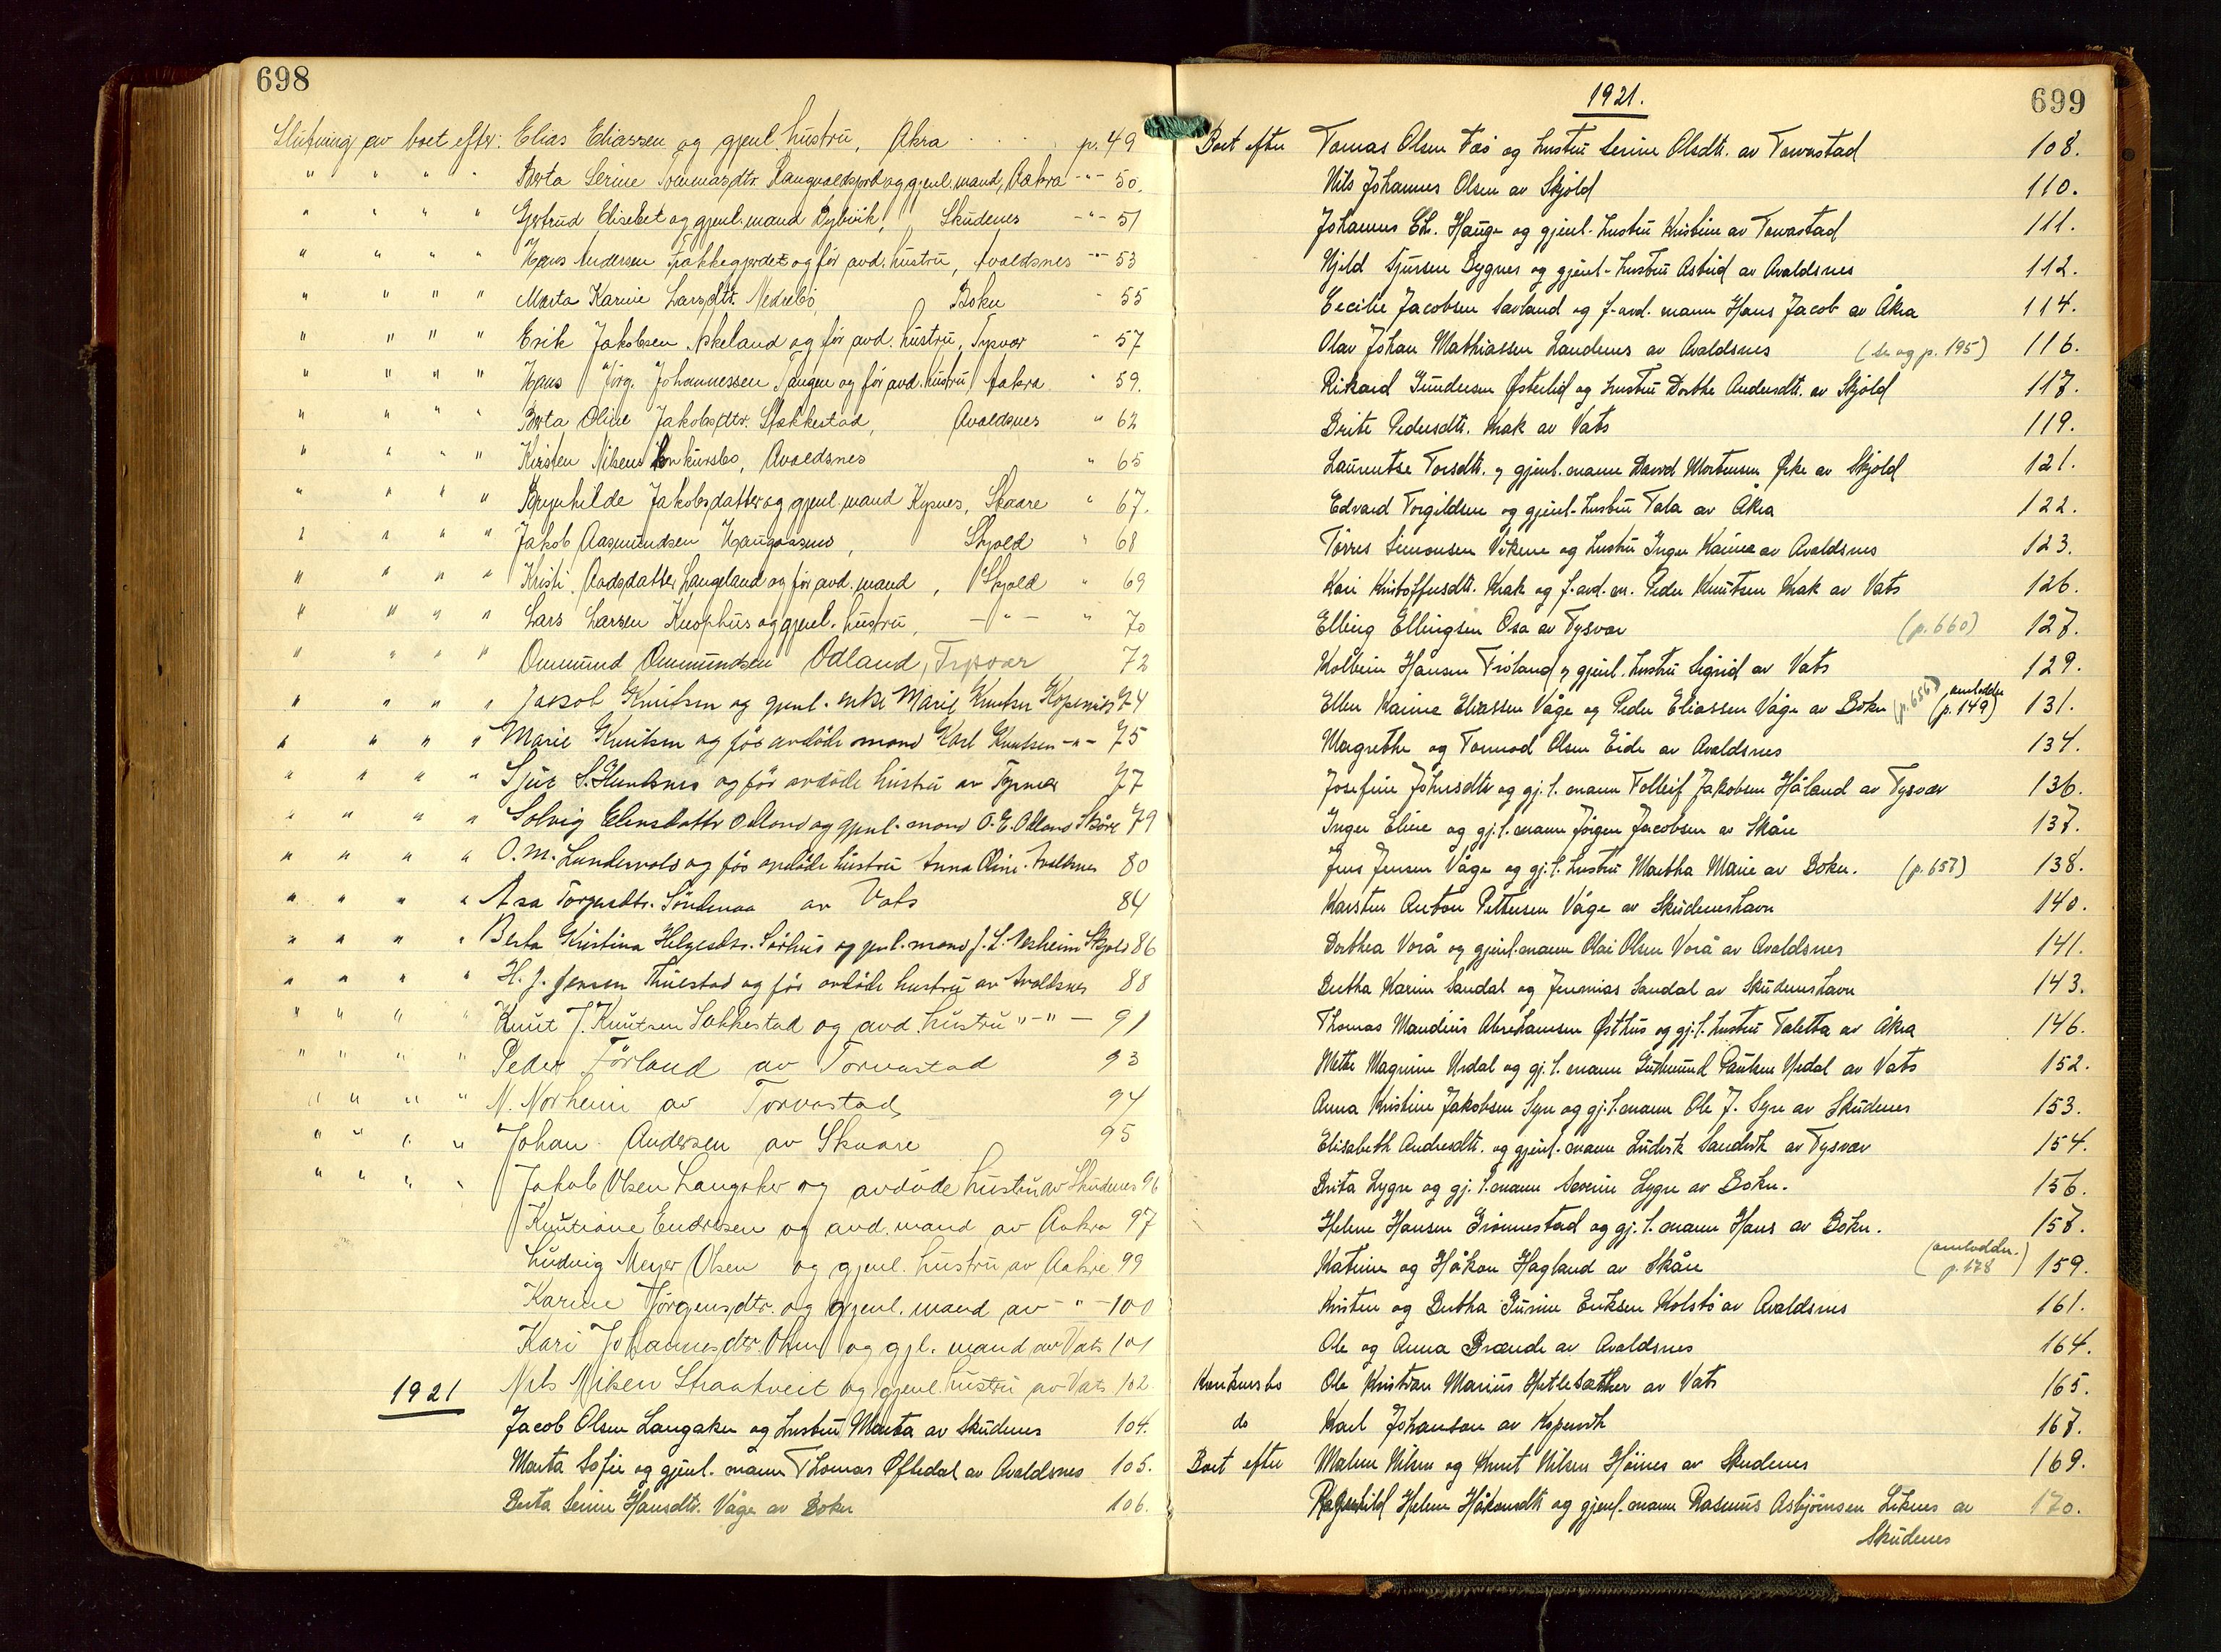 698
Slutning av boet efter: Elias Eliassen og gjenl. hustru, Akra p. 49
" " " " Berta Serine og gjenl. mand, Aakra -"- 50.
" " " " Gjertrud Elisebet og gjenl. mand Dybvik, Skudenes -"- 51
" " " " Hans Andersen og før avd. hustru, Avaldsnes -"- 53
" " " " Marta Karine Larsdtr. Nedrebø, Bokn " 55
" " " " Erik Jakobsen Askeland og før avd. hustru, Tysvær " 57
" " " " Hans Jørg. Johannessen Tangen og før avd. hustru Aakra " 59.
" " " " Berta Oline Jakobsdtr. Stakkestad, Avaldsnes " 62
" " " " Kirsten Nilsens konkursbo, Avaldsnes " 65
" " " " Brynhilde Jakobsdatter og gjenl. mand Kysnes, Skaare " 67.
" " " " Jakob Aasmundsen, Skjold " 68
" " " " Kristi Langeland og før avd. mand, Skjold " 69
" " " " Lars Larsen Knophus og gjenl. hustru, -"- " 70
" " " " Ommund Ommundsen Ødland, Tysvær 72
" " " " Jakob Knutsen og gjenl. enke Marie Knutsen Kopervik 74
" " " " Marie Knutsen og før avdøde mand Karl Knutsen -"- 75
" " " " Sjur S. og før avdøde hustru av Tysvær 77
" " " " Solvig Odland og gjenl. mand O. E. Odland Skåre 79
" " " " O. M. Lundervold og før avdøde hustru Anna Oline Avaldsnes 80
" " " " Asa Torgersdtr. Søndenaa av Vats 84
" " " " Berta Kristina Helgesdtr. Sørhus og gjenl. mand J. L. Nesheim Skjold 86
" " " " H. J. Jensen Thuestad og før avdøde hustru av Avaldsnes 88
" " " " Knut J. Knutsen Stakkestad og avd. hustru "-"- 91
" " " " Peder Førland av Torvastad 93
" " " " N. Norheim av Torvastad 94
" " " " Johan Andersen av Skaare 95
" " " " Jakob Olsen Langaker og avdøde hustru av Skudenes 96
Knutiane Endresen og avd. mand av Aakra 97
Ludvig Meyer Olsen og gjenl. hustru av Aakra 99
Karine Jørgensdtr. og gjenl. mand av -"- 100
Kari Johannesdtr. og gjl. mand av Vats 101
Nils Nilsen Straatveit og gjenl. hustru av Vats 102
1921
Jacob Olsen Langaker og hustru Marta av Skudenes 104.
Marta Sofie og gjenl. mann Thomas Øftedal av Avaldsnes 105.
Berta Serine Hansdtr. Våge av Bokn 106.
699
1921.
Boet efter Tomas Olsen Fæø og hustru Serine Olsdtr. av Torvastad 108.
Nils Johannes Olsen av Skjold 110.
Johannes Chr. Hauge og gjenl. hustru Kristine av Torvastad 111.
Kjeld Sjursen Bygnes og gjenl. hustru Astrid av Avaldsnes 112.
Cecilie Jacobsen Sævland og f. avd. mann Hans Jacob av Åkra 114.
Olav Johan Mathiassen Landenes av Avaldsnes (se og p. 195) 116.
Rikard Gundersen Østerlid og hustru Dorthe Andersdtr. av Skjold 117.
Brite Pedersdtr. Krak av Vats 119.
Laurentse Torsdtr. og gjenl. mann David Mortensen Ørke av Skjold 121.
Edvard Torgildsen og gjenl. hustru Tala av Åkra 122.
Tørres Simonsen Vikene og hustru Inger Karine av Avaldsnes 123.
Kari Kristoffersdtr. Krak og f. avd. m. Peder Knutsen Krak av Vats 126.
Elling Ellingsen Osa av Tysvær (p. 660) 127.
Kolbein Hansen Frøland og gjenl. hustru Sigrid av Vats 129.
Ellen Karine Eliassen Våge og Peder Eliassen Våge av Bokn (p. 656) (omloddn. p. 149) 131.
Margrethe og Tormod Olsen Eide av Avaldsnes 134.
Josefine Johnsdtr. og gj. l. mann Tolleif Jakobsen Håland av Tysvær 136.
Inger Eline og gj. l. mann Jørgen Jacobsen av Skåre 137.
Jens Jensen Våge og gj. l. hustru Martha Marie av Bokn. (p. 657) 138.
Karsten Anton Pettersen Våge av Skudeneshavn 140.
Dorthea Vorå og gjenl. mann Olai Olsen Vorå av Avaldsnes 141.
Bertha Karine Sandal og Jeremias Sandal av Skudeneshavn 143.
Thomas Mandius Abrahamsen Østhus og gj. l. hustru Taletta av Åkra 146.
Mette Magrine Urdal og gj. l. mann Gudmund Paulsen Urdal av Vats 152.
Anna Kristine Jakobsen Syre og gj. l. mann Ole J. Syre av Skudenes 153.
Elisabeth Andersdtr. og gjenl. mann Ludvik Sandvik av Tysvær 154.
Brita Lygre og gj. l. mann Severin Lygre av Bokn. 156.
Helene Hansen Grønnestad og gj. l. mann Hans av Bokn. 157.
Katrine og Håkon Hagland av Skåre (omloddn. p. 178) 159.
Kristen og Bertha Gurine Eriksen Kolstø av Avaldsnes 161.
Ole og Anna Brænde av Avaldsnes 164.
Konkursbo Ole Kristian Marius Hetlesæther av Vats 165.
do Karl Johanson av Kopervik 167.
Boet efter Malene Nilsen og Knut Nilsen Høines av Skudenes 169.
Ragnhild Helene Håkonsdtr. og gjenl. mann Rasmus Asbjørnsen Liknes av 170.
Skudenes